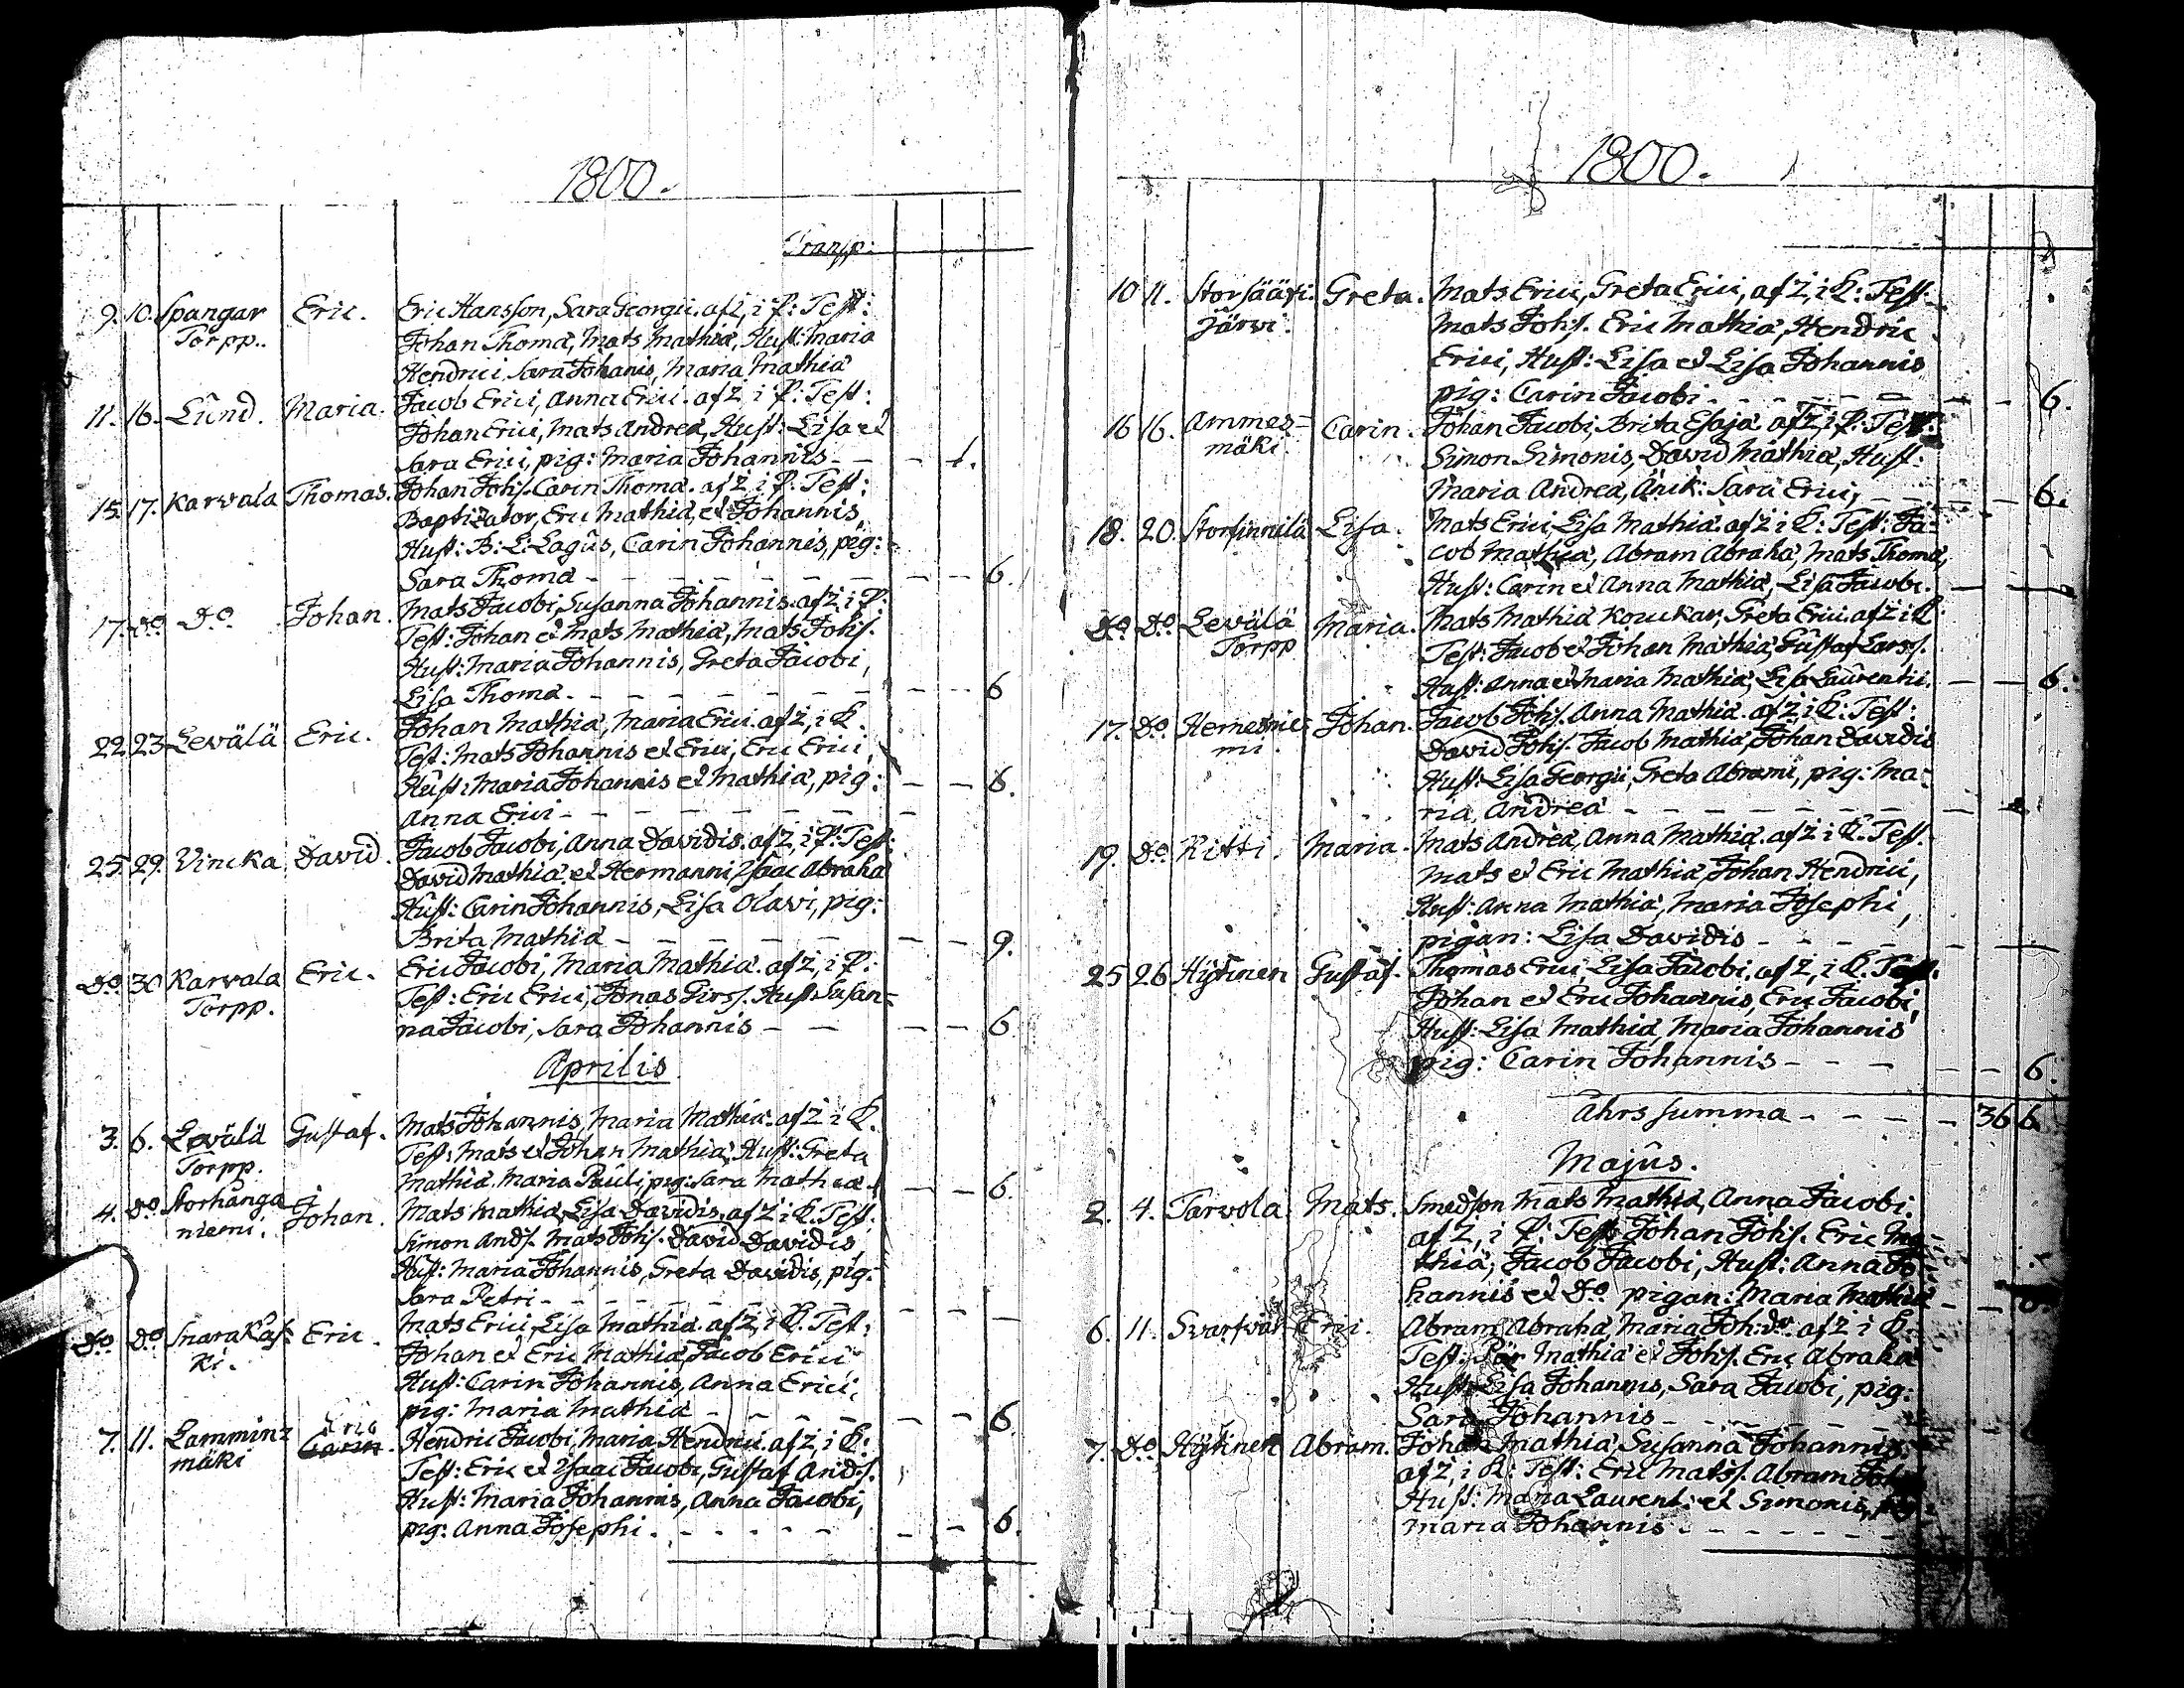 1800.
Transp:
9. 10. Spangar Eric. Eric Hansson, Sara Georgii. af 2, i P: Test:
Torpp. Johan Thomæ, Mats Mathiæ, Hust: Maria
Hendrici, Sara Johanis, Maria Mathiæ
11. 16. Lund. Maria. Jacob Erici, Anna Erici. af 2 i P: Test:
Johan Erici, Mats Andreæ, Hust: Lisa et
Sara Erici, pig: Maria Johannis - - - 1.
15. 17. Karvala Thomas. Johan Johs. Carin Thomæ. af 2 i P: Test:
Baptizator, Eric Mathiæ, et Johannis,
Hust: B: L: Lagus, Carin Johannis, pig:
Sara Thomæ - - - 6.
17. Do Do. Johan. Mats Jacobi, Susanna Johannis. af 2 i P:
Test: Johan et Mats Mathiæ, Mats Johs.
Hust: Maria Johannis, Greta Jacobi,
Lisa Thomæ - - - 6
22 23 Levälä Eric. Johan Mathiæ, Maria Erici. af 2, i K.
Test: Mats Johannis et Erici, Eric Erici,
Hust: Maria Johannis et Mathiæ, pig: - - 6.
Anna Erici - - -
25. 29. Vincka David. Jacob Jacobi, Anna Davidis. af 2, i P: Test:
David Mathiæ et Hermanni Isaac Abrahæ
Hust: Carin Johannis, Lisa Olavi, pig:
Brita Mathiæ - - - 9.
Do 30 Karvala Eric. Eric Jacobi, Maria Mathiæ. af 2, i P:
Torpp. Test: Eric Erici, Jonas Girss. Hust: Susan=
na Jacobi, Sara Johannis - - - 6
Aprilis
3. 6. Levälä Gustaf. Mats Johannis, Maria Mathiæ. af 2 i K.
Torpp. Test: Mats et Johan Mathiæ, Hust: Greta
Mathiæ, Maria Pauli, pig: Sara Mathiæ - - 6.
4. Do Storhänga Johan. Mats Mathiæ, Lisa Davidis. af 2 i K. Test:
niemi. Simon Ands. Mats Johs. David Davidis,
Hust: Maria Johannis, Greta Davidis, pig:
Sara Petri - - -
Do Do Snara Kas= Eric. Mats Erici, Lisa Mathiæ. af 2, i K. Test:
ki. Johan et Eric Mathiæ, Jacob Erici
Hust: Carin Johannis, Anna Erici,
pig: Maria Mathiæ - - - 6
7. 11. Lammin= Eric Hendric Jacobi, Maria Hendrici. af 2, i K:
mäki Carin. Test: Eric et Isaac Jacobi, Gustaf Ands.
Hust: Maria Johannis, Anna Jacobi,
pig: Anna Josephi. - - - 6.
1800.
10 11. Storsääri= Greta. Mats Erici, Greta Erici, af 2, i K: Test:
järwi. Mats Johs. Eric Mathiæ, Hendric
Erici, Hust: Lisa et Lisa Johannis
pig: Carin Jacobi - - - 6.
16 16. Ammes= Carin. Johan Jacobi, Brita Esajæ. af 2, i P: Test:
mäki. Simon Simonis, David Mathiæ, Hust:
Maria Andreæ, Änk: Sara Erici, - - - 6.
18. 20. Storfinnilä Lisa. Mats Erici, Lisa Mathiæ. af 2 i K: Test: Ja=
cob Mathiæ, Abram Abrahæ, Mats Thomæ,
Hust: Carin et Anna Mathiæ, Lisa Jacobi. - -
Do Do. Levälä Maria. Mats Mathiæ Kouckar, Greta Erici. af 2 i K
Torpp Test: Jacob et Johan Mathiæ, Gustaf Larss.
Hust: Anna et Maria Mathiæ, Lisa Laurentii. - - 6.
17. Do. Hernesnie= Johan. Jacob Johs. Anna Mathiæ. af 2 i K: Test:
mi. David Johs. Jacob Mathiæ, Johan Davidis
Hust: Lisa Georgii, Greta Abrami, pig: Ma=
ria Andreæ - - -
19. Do. Kitti. Maria. Mats Andreæ, Anna Mathiæ. af 2 i K. Test.
Mats et Eric Mathiæ, Johan Hendrici,
Hust: Anna Mathiæ, Maria Josephi,
pigan: Lisa Davidis - - -
25 26 Hytinen Gustaf. Thomas Erici, Lisa Jacobi. af 2, i K. Test.
Johan et Eric Johannis, Eric Jacobi,
Hust: Lisa Mathiæ, Maria Johannis
pig: Carin Johannis - - - 6.
Åhrs summa - - - 36 6.
Majus.
2. 4. Tarvola Mats. Smedson Mats Mathiæ, Anna Jacobi.
af 2, i P: Test: Johan Johs. Eric Ma=
thiæ, Jacob Jacobi, Hust: Anna Jo=
hannis et Do. pigan: Maria Mathiæ - -
6. 11. Svartvar Eric. Abram Abrahæ, Maria Joh: Do. af 2 i K:
Test: Pär Mathiæ et Johs. Eric Abrahæ
Hust: Lisa Johannis, Sara Jacobi, pig:
Sara Johannis - - -
7. Do. Hytinen Abram. Johan Mathiæ Susanna Johannis,
af 2, i K: Test: Eric Matss. Abram
Hust: Maria Laurent: et Simonis,
Maria Johannis - - -